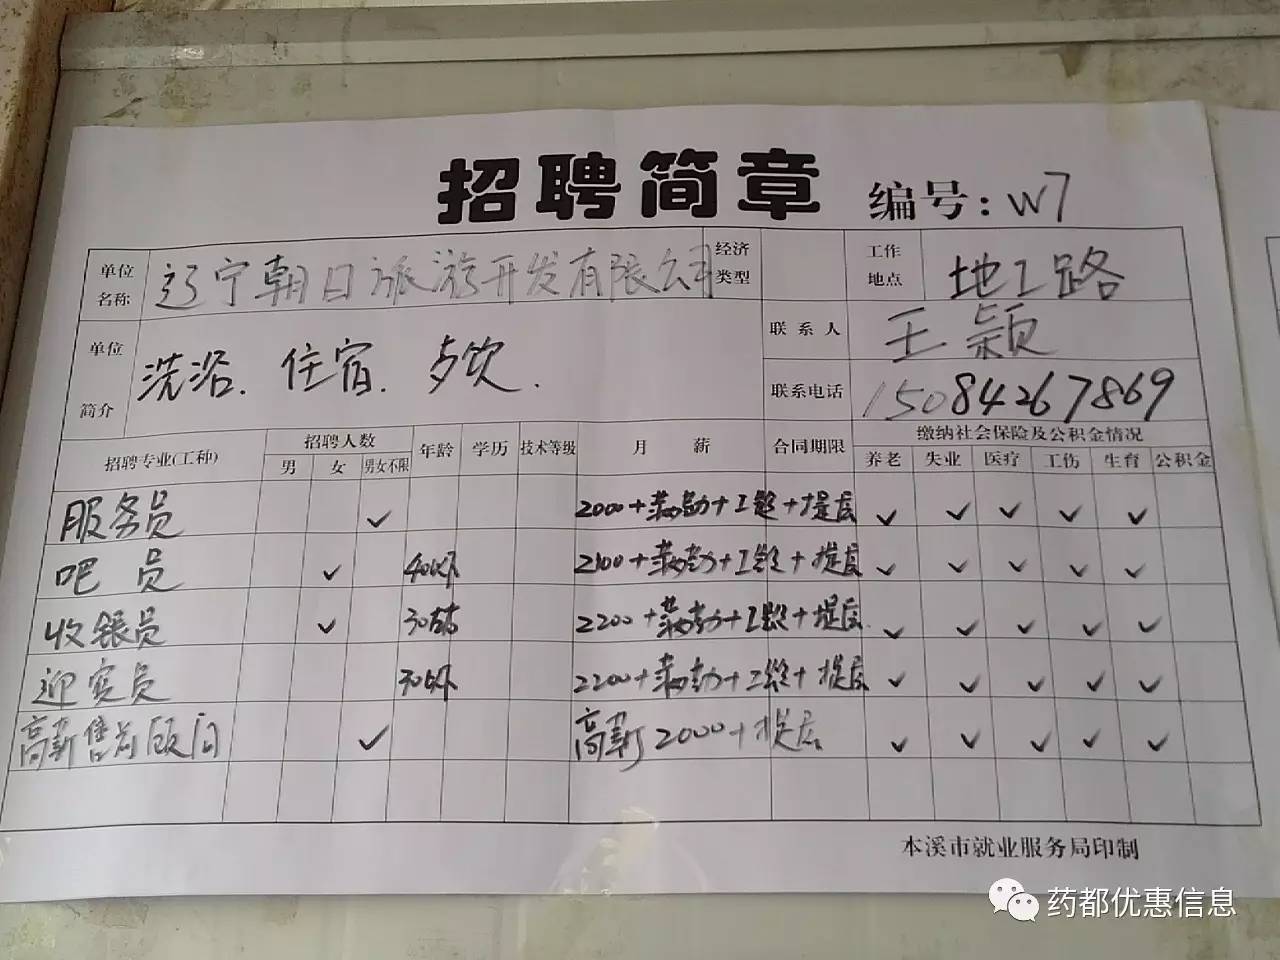 招聘简章 编号: W7
单位名称 辽宁朝日旅游开发有限公司 经济类型 工作地点 地工路
单位简介 洗浴、住宿、 联系人 王颖
联系电话 15084267869
招聘专业(工种) 招聘人数 年龄 学历 技术等级 月薪 合同期限 缴纳社会保险及公积金情况
男 女 男女不限 养老 失业 医疗 工伤 生育 公积金
服务员 ✓ 2000+满勤+工龄+提层 ✓ ✓ ✓ ✓ ✓
吧员 ✓ 40以下 2100+满勤+工龄+提层 ✓ ✓ ✓ ✓ ✓
收银员 ✓ 30左右 2200+满勤+工龄+提层 ✓ ✓ ✓ ✓ ✓
迎宾员 30以下 2200+满勤+工龄+提层 ✓ ✓ ✓ ✓ ✓
高薪售前顾问 ✓ 高薪2000+提层 ✓ ✓ ✓ ✓ ✓
本溪市就业服务局印制
药都优惠信息